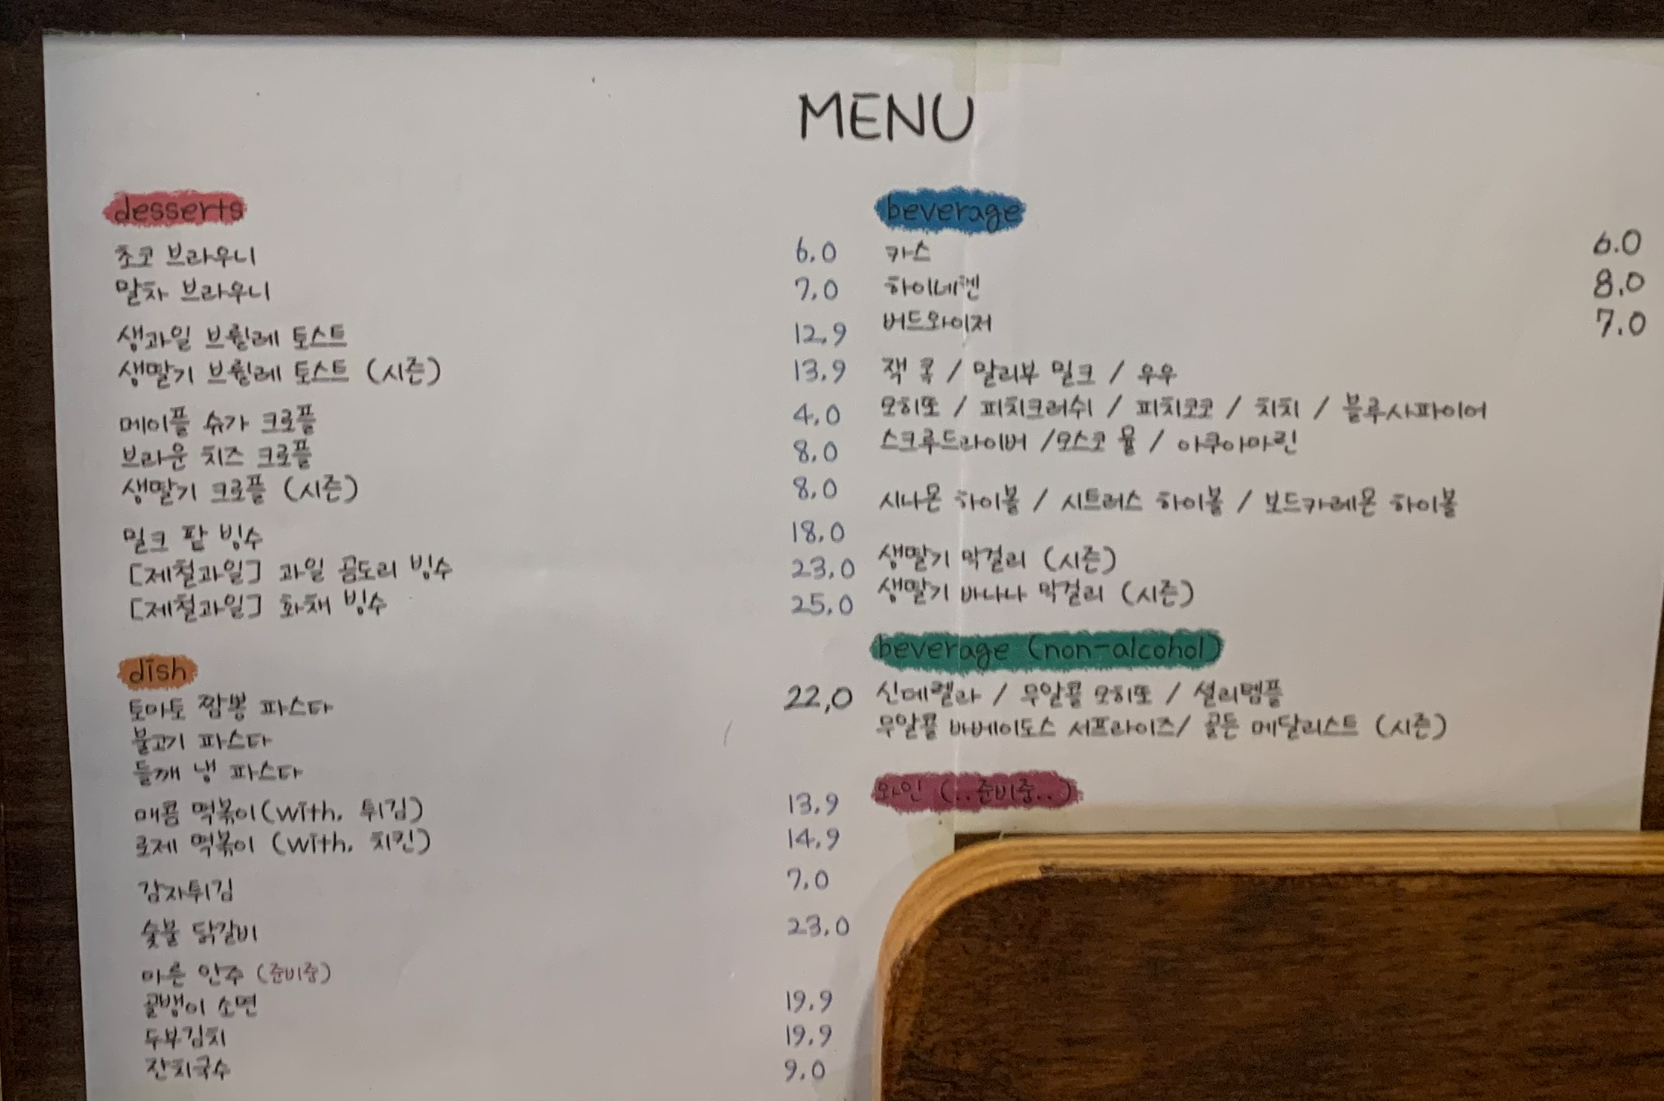 MENU
desserts
초코 브라우니 6.0
말차 브라우니 7.0
생과일 브륄레 토스트 12.9
생딸기 브륄레 토스트 (시즌) 13.9
메이플 슈가 크로플 4.0
브라운 치즈 크로플 8.0
생딸기 크로플 (시즌) 8.0
밀크 팥 빙수 18.0
[제철과일] 과일 곰도리 빙수 23.0
[제철과일] 화채 빙수 25.0
dish
토마토 짬뽕 파스타 22,0
불고기 파스타
들깨 냉 파스타
매콤 떡볶이(with. 튀김) 13.9
로제 떡볶이 (with. 치킨) 14.9
감자튀김 7.0
숯불 닭갈비 23.0
마른 안주 (준비중)
골뱅이 소면 19.9
두부김치 19.9
잔치국수 9.0
beverage
카스 6.0
하이네켄 8.0
버드와이저 7.0
잭 콕 / 말리부 밀크 / 우우
모히또 / 피치크러쉬 / 피치코코 / 치치 / 블루사파이어
스크루드라이버 /모스코 뮬 / 아쿠아마린
시나몬 하이볼 / 시트러스 하이볼 / 보드카레몬 하이볼
생딸기 막걸리 (시즌)
생딸기 바나나 막걸리 (시즌)
beverage (non-alcohol)
신데렐라 / 무알콜 모히또 / 셜리템플
무알콜 바베이도스 서프라이즈/ 골든 메달리스트 (시즌)
와인 (..준비중..)